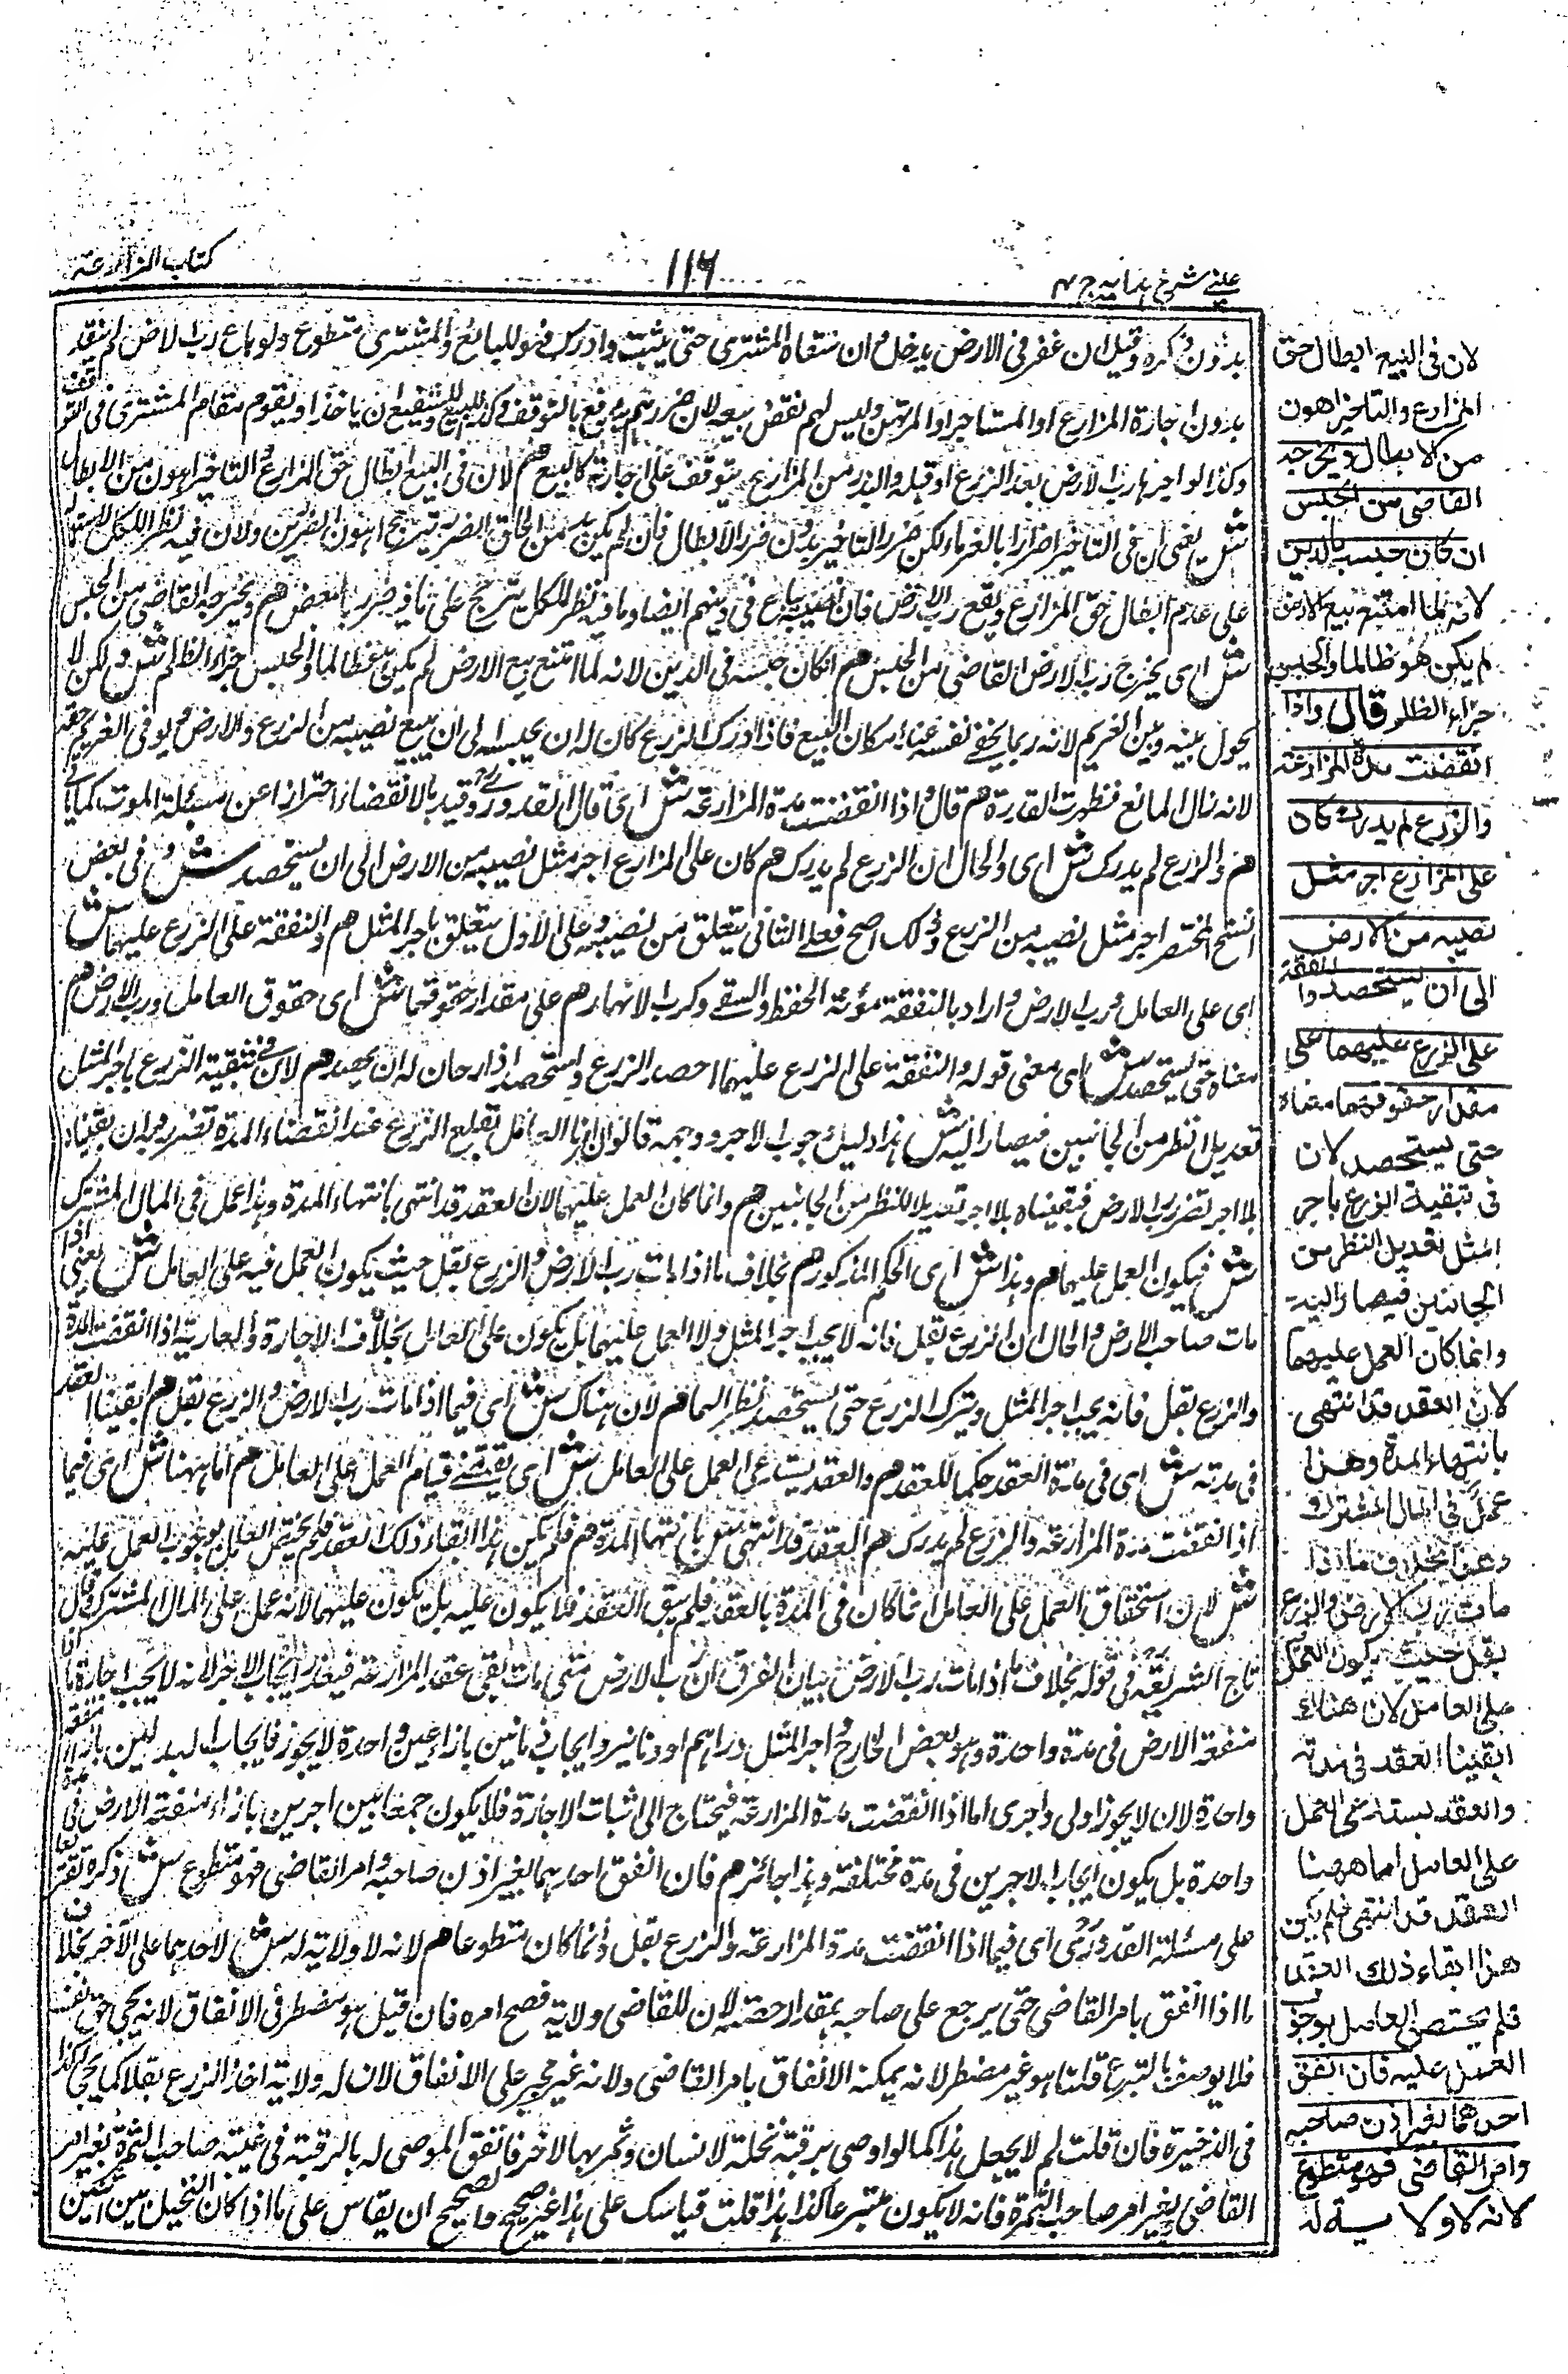 عینی شرح ہدایہ ج ۴
۱۱۶
کتاب المزارعة
بدون ذكره وقيل ان عفر فى الارض يدخل وان سقاه المشترى حتى ينبت وادرك فهو للبائع والمشترى متطوع ولو باع رب الارض لم ينفذ
بدون اجازة المزارع او المستاجر او المرتهن وليس لهم نقض بيعه لان ضررهم يدفع بالتوقف وكذا للبيع وللشفيع ان ياخذها ويقوم مقام المشترى فى التوقف
وكذا لو اجرها رب الارض بعد الزرع او قبله والبذر من المزارع يتوقف على اجازته كالبيع هم لان فى البيع ابطال حق المزارع والتاخير اهون من الابطال
ش يعنى ان فى التاخير اضرارا بالغرماء ولكن ضرر التاخير بدون ضرر الابطال فان لم يكن بد من الحاق الضرر يترجح اهون الضررين ولان فيه نظر للكل
على عدم ابطال حق المزارع ونفع رب الارض فان نصيبه يباع فى دينهم ايضا وما فيه نظر للكل يترجح على ما فيه ضرر بالبعض هم ويخرجه القاضى من الحبس
ش اى يخرج رب الارض القاضى من الحبس هم ان كان حبسه فى الدين لانه لما امتنع بيع الارض لم يكن هو ظالما والحبس جزاء الظلم ش ولكن لا
يحول بينه وبين الغريم لانه ربما يخفى نفسه عند امكان البيع فاذا ادرك الزرع كان له ان يحبسه الى ان يبيع نصيبه من الزرع والارض ويوفى الغريم حقه
لانه زال المانع فظهرت القدرة هم قال واذا انقضت مدة المزارعة ش اى قال القدورى وقيد بالانقضاء احترازا عن مسئلة الموت كما ياتى
هم والزرع لم يدرك ش اى والحال ان الزرع لم يدرك هم كان على المزارع اجر مثل نصيبه من الارض الى ان يستحصد ش وفى بعض
النسخ المختصر اجر مثل نصيبه من الزرع وذلك اصح فعلى الثانى يتعلق من نصيبه وعلى الاول يتعلق باجر المثل هم والنفقة على الزرع عليهما ش
اى على العامل ورب الارض واراد بالنفقة مؤنة الحفظ والسقى وكرب الانهار هم على مقدار حقوقهما ش اى حقوق العامل ورب الارض هم
معناه حتى يستحصد ش اى معنى قوله والنفقة على الزرع عليهما احصد الزرع واستحصد اذا حان له ان يحصد هم لان فى تبقية الزرع باجر المثل
تعديل النظر من الجانبين فيصار اليه ش هذا دليل وجوب الاجر ووجهه قالوا ان امرنا العامل بقلع الزرع عند انقضاء المدة تضرر وان بقيناه
بلا اجر تضرر رب الارض فبقيناه بلا اجر تعديلا للنظر من الجانبين هم وانما كان العمل عليهما لان العقد قد انتهى بانتهاء المدة وهذا عمل فى المال المشترك
ش فيكون العمل عليهما هم وهذا ش اى الحكم المذكور هم بخلاف ما اذا مات رب الارض والزرع بقل حيث يكون العمل فيه على العامل ش يعنى اذا
مات صاحب الارض والحال ان الزرع بقل فانه لا يجب اجر المثل ولا العمل عليهما بل يكون على العامل بخلاف الاجارة والعارية اذا انقضت المدة
والزرع بقل فانه يجب اجر المثل ويترك الزرع حتى يستحصد نظرا لهما هم لان هناك ش اى فيما اذا مات رب الارض والزرع بقل هم ابقينا العقد
فى مدته ش اى فى مدة العقد حكما للعقد هم والعقد يستدعى العمل على العامل ش اى يقتضى قيام العمل على العامل هم اما ههنا ش اى فيما
اذا انقضت مدة المزارعة والزرع لم يدرك هم العقد قد انتهى ش بانتهاء المدة هم فلم يكن هذا ابقاء ذلك العقد فلم يختص العامل بوجوب العمل عليه
ش لان استحقاق العمل على العامل انما كان فى المدة بالعقد فلم يبق العقد فلا يكون عليه بل يكون عليهما لانه عمل على المال المشترك وقال
تاج الشريعة فى قوله بخلاف ما اذا مات رب الارض بيان الفرق ان رب الارض متى مات بقى عقد المزارعة فيعذر ايجاب الاجر لانه لا يجب اجارة
منفعة الارض فى مدة واحدة وهو بعض الخارج واجر المثل دراهم او دنانير وايجاب ثمانين بازاء عين واحدة لا يجوز فايجاب البدلين بازاء منفعة
واحدة لان لا يجوز اولى واحرى اما اذا انقضت مدة المزارعة فيحتاج الى اثبات الاجارة فلا يكون جمعا بين اجرين بازاء منفعة الارض فى مدة
واحدة بل يكون ايجاب الاجرين فى مدة مختلفة وهذا جائز هم فان انفق احدهما بغير اذن صاحبه وامر القاضى فهو متطوع ش ذكره تفريعا
على مسئلة القدورى اى فيما اذا انقضت مدة المزارعة والزرع بقل وانما كان متطوعا هم لانه لا ولاية له ش لاحدهما على الآخر بخلاف
ما اذا انفق بامر القاضى حتى يرجع على صاحبه بمقدار حصته لان للقاضى ولاية فصح امره فان قيل هو مضطر فى الانفاق لانه يحيى حق نفسه
فلا يوصف بالتبرع قلنا هو غير مضطر لانه يمكنه الانفاق بامر القاضى ولانه غير مجبر على الانفاق لان له ولاية اخذ الزرع بقلا كما يجئ كذا
فى الذخيرة فان قلت لم لا يجعل هذا كما لو اوصى برقبة نخلة لانسان وثمرها لآخر فانفق الموصى له بالرقبة فى غيبة صاحب الثمرة بغير امر
القاضى بغير امر صاحب الثمرة فانه لا يكون متبرعا كذا هذا قلت قياسك على هذا غير صحيح والصحيح ان يقاس على ما اذا كان النخيل بين اثنين
لان فى البيع ابطال حق
المزارع والتاخير اهون
من الابطال ويخرجه
القاضى من الحبس
ان كان حبسه بالدين
لانه لما امتنع بيع الارض
لم يكن هو ظالما والحبس
جزاء الظلم قال واذا
انقضت مدة المزارعة
والزرع لم يدرك كان
على المزارع اجر مثل
نصيبه من الارض
الى ان يستحصد والنفقة
على الزرع عليهما على
مقدار حقوقهما معناه
حتى يستحصد لان
فى تبقية الزرع باجر
المثل تعديل النظر من
الجانبين فيصار اليه
وانما كان العمل عليهما
لان العقد قد انتهى
بانتهاء المدة وهذا
عمل فى المال المشترك
وهذا بخلاف ما اذا
مات رب الارض والزرع
بقل حيث يكون العمل
على العامل لان هناك
ابقينا العقد فى مدته
والعقد يستدعى العمل
على العامل اما ههنا
العقد قد انتهى فلم يكن
هذا ابقاء ذلك العقد
فلم يختص العامل بوجوب
العمل عليه فان انفق
احدهما بغير اذن صاحبه
وامر القاضى فهو متطوع
لانه لا ولاية له